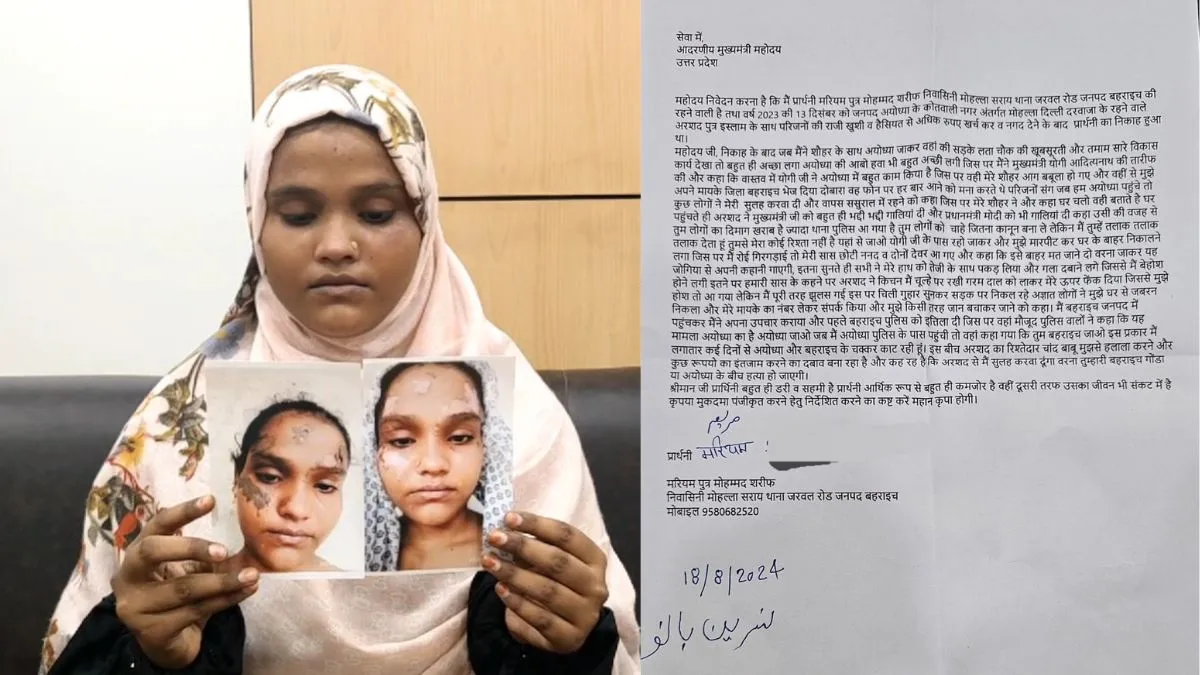 सेवा में,
आदरणीय मुख्यमंत्री महोदय
उत्तर प्रदेश
महोदय निवेदन करना है कि मैं प्रार्थनी मरियम पुत्र मोहम्मद शरीफ निवासिनी मोहल्ला सराय थाना जरवल रोड जनपद बहराइच की
रहने वाली है तथा वर्ष 2023 की 13 दिसंबर को जनपद अयोध्या के कोतवाली नगर अंतर्गत मोहल्ला दिल्ली दरवाजा के रहने वाले
अरशद पुत्र इस्लाम के साथ परिजनों की राजी खुशी व हैसियत से अधिक रुपए खर्च कर व नगद देने के बाद प्रार्थनी का निकाह हुआ
था।
महोदय जी, निकाह के बाद जब मैंने शौहर के साथ अयोध्या जाकर वहां की सड़के लता चौक की खूबसूरती और तमाम सारे विकास
कार्य देखा तो बहुत ही अच्छा लगा अयोध्या की आबो हवा भी बहुत अच्छी लगी जिस पर मैंने मुख्यमंत्री योगी आदित्यनाथ की तारीफ
की और कहा कि वास्तव में योगी जी ने अयोध्या में बहुत काम किया है जिस पर वही मेरे शौहर आग बबूला हो गए और वहीं से मुझे
अपने मायके जिला बहराइच भेज दिया दोबारा वह फोन पर हर बार आने को मना करते थे परिजनों संग जब हम अयोध्या पहुंचे तो
कुछ लोगों ने मेरी सुलह करवा दी और वापस ससुराल में रहने को कहा जिस पर मेरे शौहर ने और कहा घर चलो वही बताते है घर
पहुंचते ही अरशद ने मुख्यमंत्री जी को बहुत ही भद्दी भद्दी गालियां दी और प्रधानमंत्री मोदी को भी गालियां दी कहा उसी की वजह से
तुम लोगों का दिमाग खराब है ज्यादा थाना पुलिस आ गया है तुम लोगों को चाहे जितना कानून बना ले लेकिन मैं तुम्हें तलाक तलाक
तलाक देता हूं तुमसे मेरा कोई रिश्ता नहीं है यहां से जाओ योगी जी के पास रहो जाकर और मुझे मारपीट कर घर के बाहर निकालने
लगा जिस पर मैं रोई गिरगड़ाई तो मेरी सास छोटी ननद व दोनों देवर आ गए और कहा कि इसे बाहर मत जाने दो वरना जाकर यह
जोगिया से अपनी कहानी गाएगी, इतना सुनते ही सभी ने मेरे हाथ को तेजी के साथ पकड़ लिया और गला दबाने लगे जिससे मैं बेहोश
होने लगी इतने पर हमारी सास के कहने पर अरशद ने किचन में चूल्हे पर रखी गरम दाल को लाकर मेरे ऊपर फेंक दिया जिससे मुझे
होश तो आ गया लेकिन मैं पूरी तरह झुलस गई इस पर चिली गुहार सुनकर सड़क पर निकल रहे अज्ञात लोगों ने मुझे घर से जबरन
निकला और मेरे मायके का नंबर लेकर संपर्क किया और मुझे किसी तरह जान बचाकर जाने को कहा। मैं बहराइच जनपद में
पहुंचकर मैंने अपना उपचार कराया और पहले बहराइच पुलिस को इतिला दी जिस पर वहां मौजूद पुलिस वालों ने कहा कि यह
मामला अयोध्या का है अयोध्या जाओ जब मैं अयोध्या पुलिस के पास पहुंची तो वहां कहा गया कि तुम बहराइच जाओ इस प्रकार मैं
लगातार कई दिनों से अयोध्या और बहराइच के चक्कर काट रही हूं। इस बीच अरशद का रिश्तेदार चांद बाबू मुझसे हलाला करने और
कुछ रूपयो का इंतजाम करने का दबाव बना रहा है और कह रहा हैकि अरशद से मैं सुलह करवा दूंगा वरना तुम्हारी बहराइच गोंडा
या अयोध्या के बीच हत्या हो जाएगी।
श्रीमान जी प्रार्थिनी बहुत ही डरी व सहमी है प्रार्थनी आर्थिक रूप से बहुत ही कमजोर है वहीं दूसरी तरफ उसका जीवन भी संकट में है
कृपया मुकदमा पंजीकृत करने हेतु निर्देशित करने का कष्ट करें महान कृपा होगी।
مریم
प्रार्थनी मरियम :
मरियम पुत्र मोहम्मद शरीफ
निवासिनी मोहल्ला सराय थाना जरवल रोड जनपद बहराइच
मोबाइल 9580682520
18/8/2024
نسرین بانو